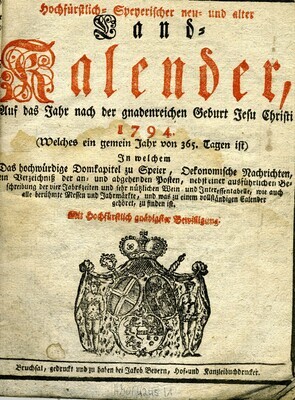 Hochfürstlich-Speyerischer neu- und alter
Land-
Kalender,
Auf das Jahr nach der gnadenreichen Geburt Jesu Christi
1794.
(Welches ein gemein Jahr von 365. Tagen ist)
In welchem
Das hochwürdige Domkapitel zu Speier, Oekonomische Nachrichten,
ein Verzeichniß der an- und abgehenden Posten, nebst einer ausführlichen Be-
schreibung der vier Jahrszeiten und sehr nützlichen Wein- und Interessentabelle, wie auch
alle berühmte Messen und Jahrmärkte, und was zu einem vollständigen Calender
gehöret, zu finden ist.
Mit Hochfürstlich gnädigster Bewilligung.
Bruchsal, gedruckt und zu haben bei Jakob Bevern, Hof- und Kanzleibuchdrucker.